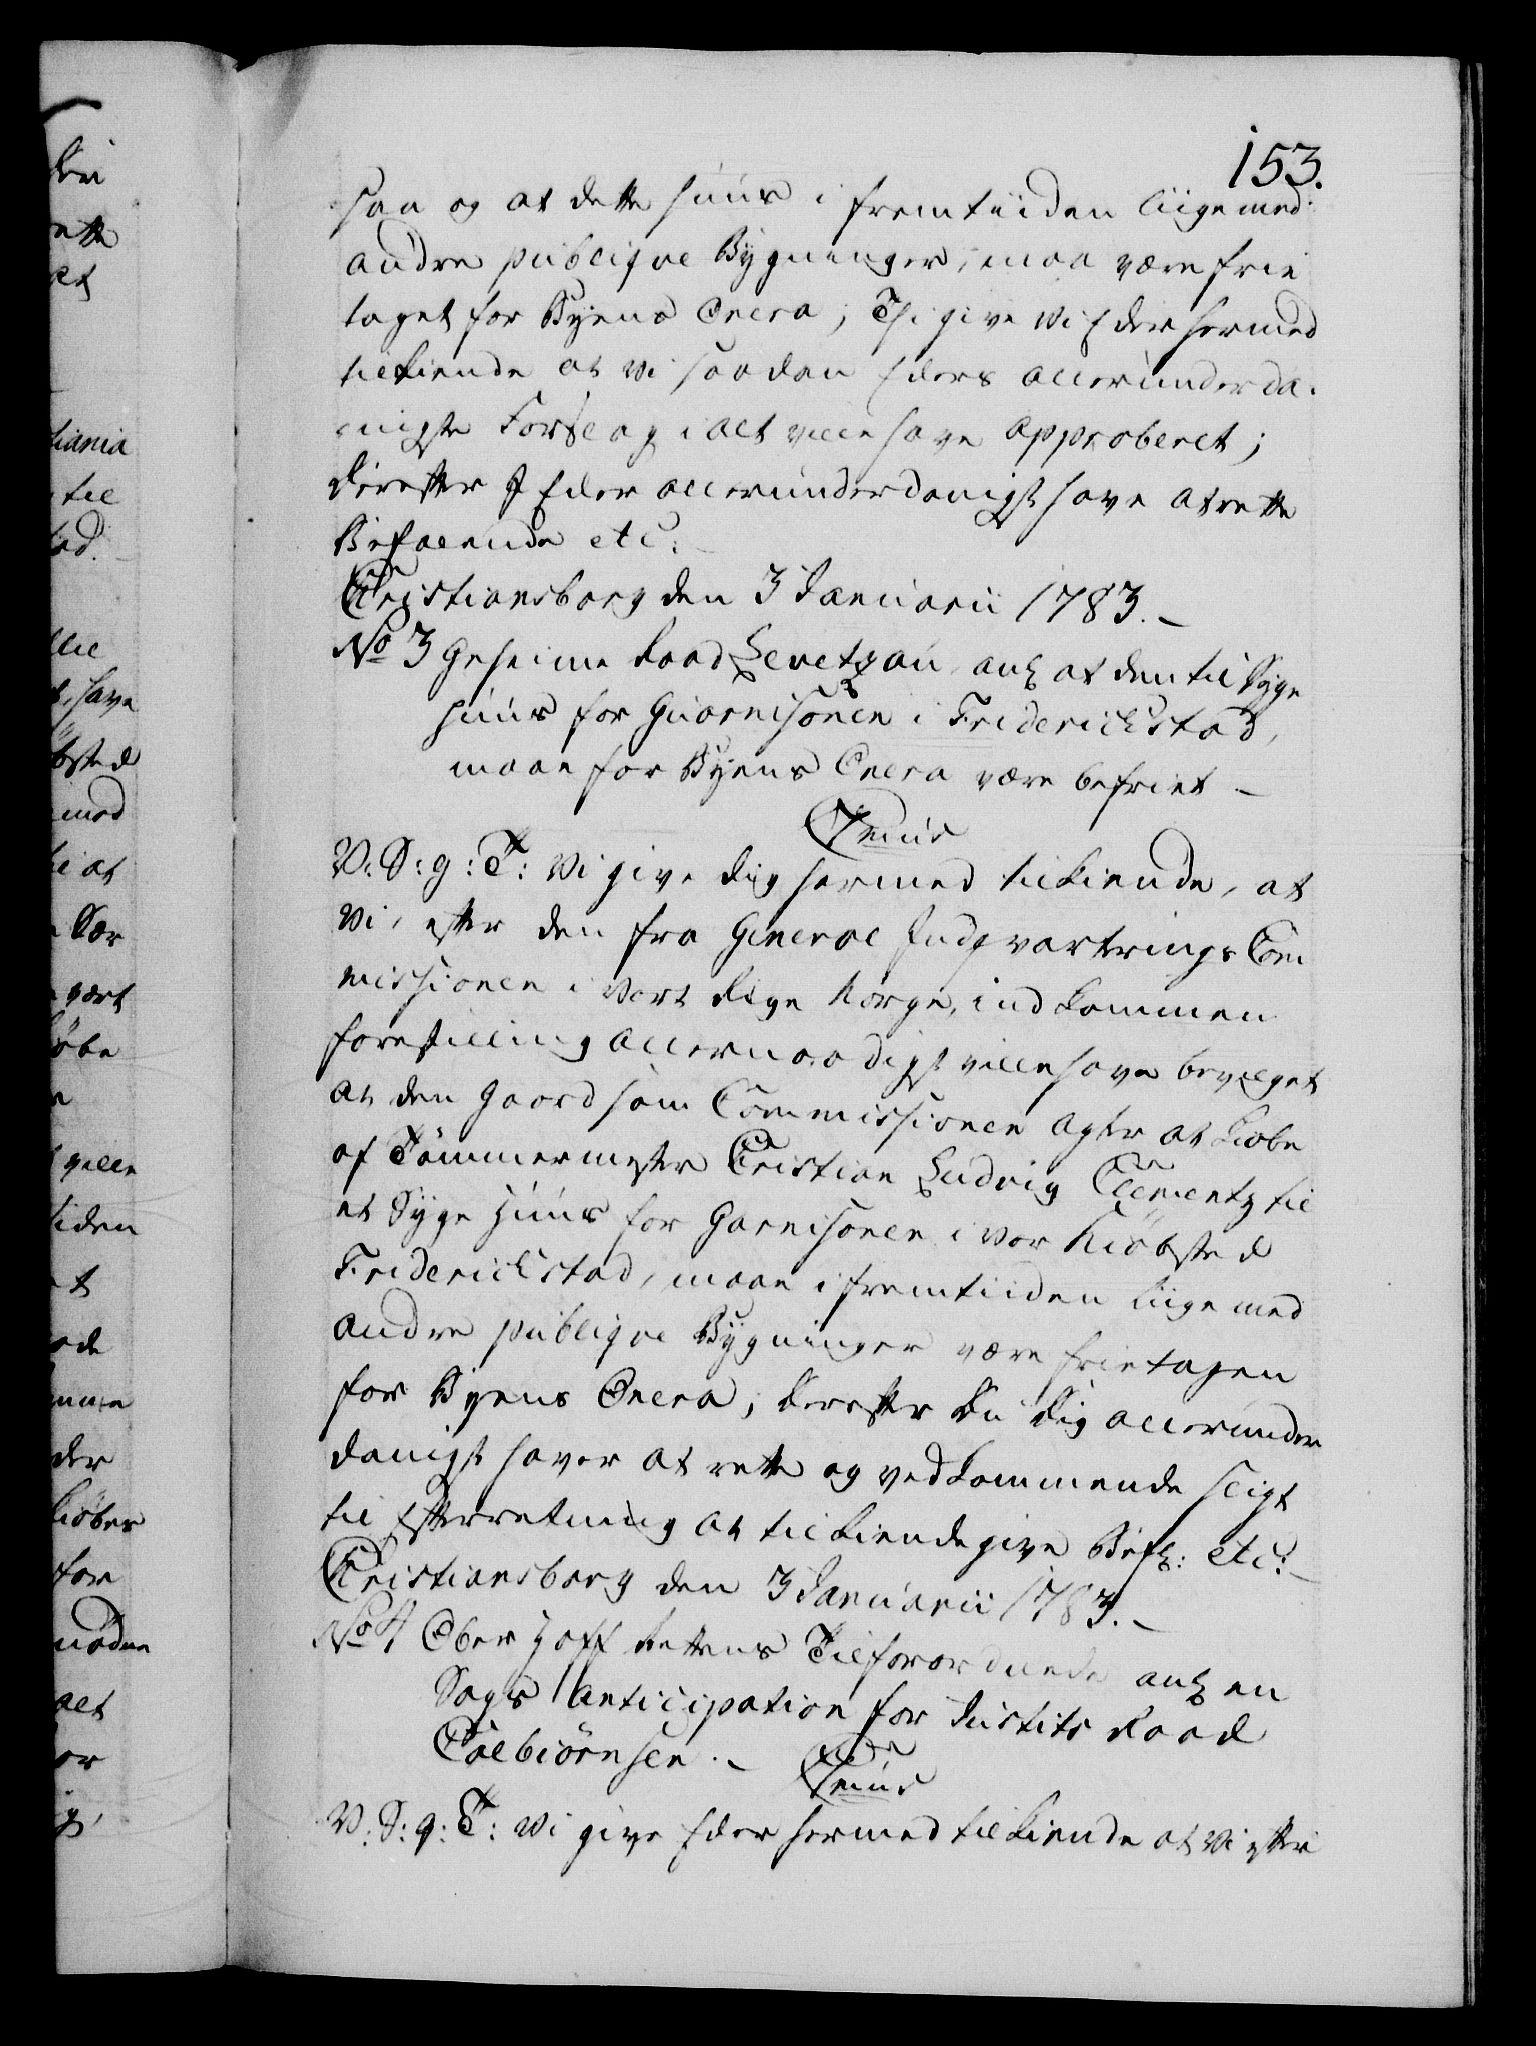 153.
saa og at dette Huus i fremtiiden liige med
andre publiqve Bygninger, maa være frie
taget for Byens Onera; Thi give Vi Eder hermed
tilkiende at Vi saadan Eders allerunderda-
nigste Forslag i alt ville have approberet;
Derefter I Eder allerunderdanigst have at rette
Befalende etc:
Christiansborg den 3 Januarii 1783.-
No 3 Geheime Raad Levetzau ang at den til Syge
Huus for Guarnisonen i Friderichstad,
maae for Byens Onera være befriet -
C7mus
V: S: g: T: Vi give dig hermed tilkiende, at
Vi, efter den fra General Indqvarterings Com
missionen i Vort Rige Norge, indkommen
forestilling allernaadigst ville have bevilget
at den Gaard som Commissionen agter at kiøbe
af Tømmermester Christian Ludvig Clementz til
et Syge Huus for Garnisonen i vor Kiøbsted
Friderichstad, maae i fremtiiden liige med
andre publiqve Bygninger være frietagen
for Byens Onera; Derefter Du Dig allerunder
danigst haver at rette og vedkommende sligt
til Efterretning at tilkiendegive Befl: etc:-
Christiansborg den 3 Januarii 1783.-
No 4 Ober Hoff Rettens Tilforordnede ang en
Sags Anticipation for Justits Raad
Colbiørnsen.- C7mus
V: S: g: T: Vi give Eder hermed tilkiende at Vi efter